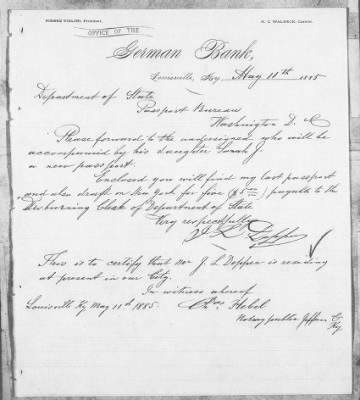 OFFICE OF THE
German Bank,
Louisville, Ky, May 11th 1885
Department of State
Passport Bureau
Washington D. C
Please forward to the undersigned who will be
accompanied by his daughter Sarah J.
a new passport.
Enclosed you will find my last passport
and also draft on New York for five ($5 00/100) payable to the
Disbursing Clerk of Department of State
Very respectfully
J. L. Deppen
This is to certify that Mr J. L. Deppen is residing
at present in our City.
In witness whereof
Louisville Ky May 11th 1885. Chas Hebel
Notary public Jefferson Co
Ky